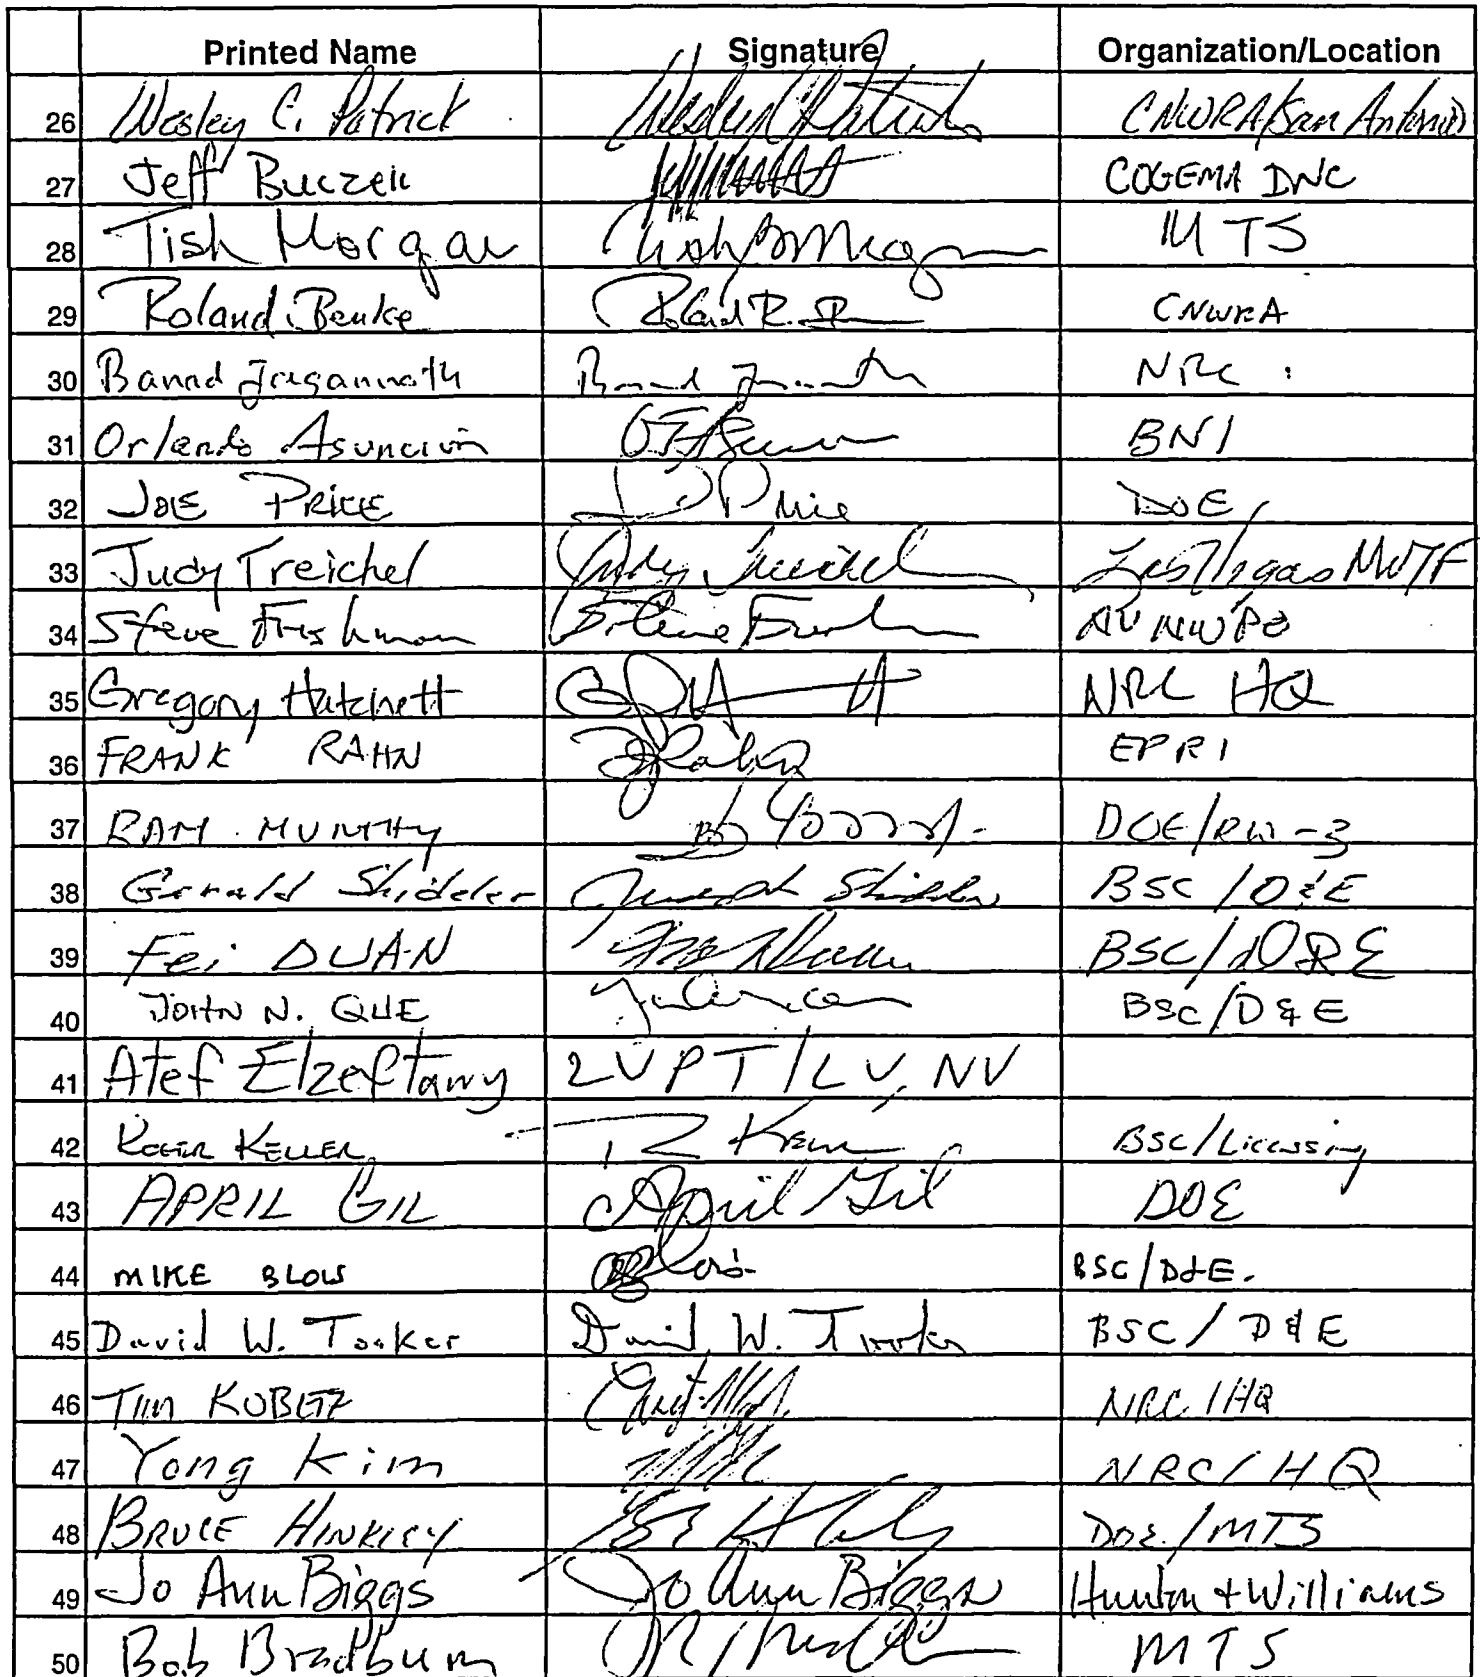 Printed Name Signature Organization/Location
26 Wesley C. Patrick Wesley C Patrick CNWRA/San Antonio
27 Jeff Buczek COGEMA DNC
28 Tish Morgan MTS
29 Roland Benke Roland R. CNWRA
30 Banad Jagannath NRC
31 Orlando Asuncion BNI
32 JOE PRICE J Price DOE
33 Judy Treichel Judy Treichel Las Vegas NWTF
34 Steve Frishman Steve Frishman NV NWPO
35 Gregory Hatchett NRC HQ
36 FRANK RAHN EPRI
37 RAM MURTHY DOE/RW-3
38 Gerald Shideler Shideler BSC/D&E
39 Fei DUAN Fei Duan BSC/D&E
40 JOHN N. QUE BSC/D&E
41 Atef Elzeftawy LVPT/LV, NV
42 ROGER KELLER BSC/Licensing
43 APRIL GIL April Gil DOE
44 MIKE BLOW BSC/D&E.
45 David W. Tooker David W. Tooker BSC/D&E
46 TIM KOBETZ NRC/HQ
47 Yong Kim NRC/HQ
48 BRUCE HINKLEY DOE/MTS
49 Jo Ann Biggs Jo Ann Biggs Hunton + Williams
50 Bob Bradbury MTS